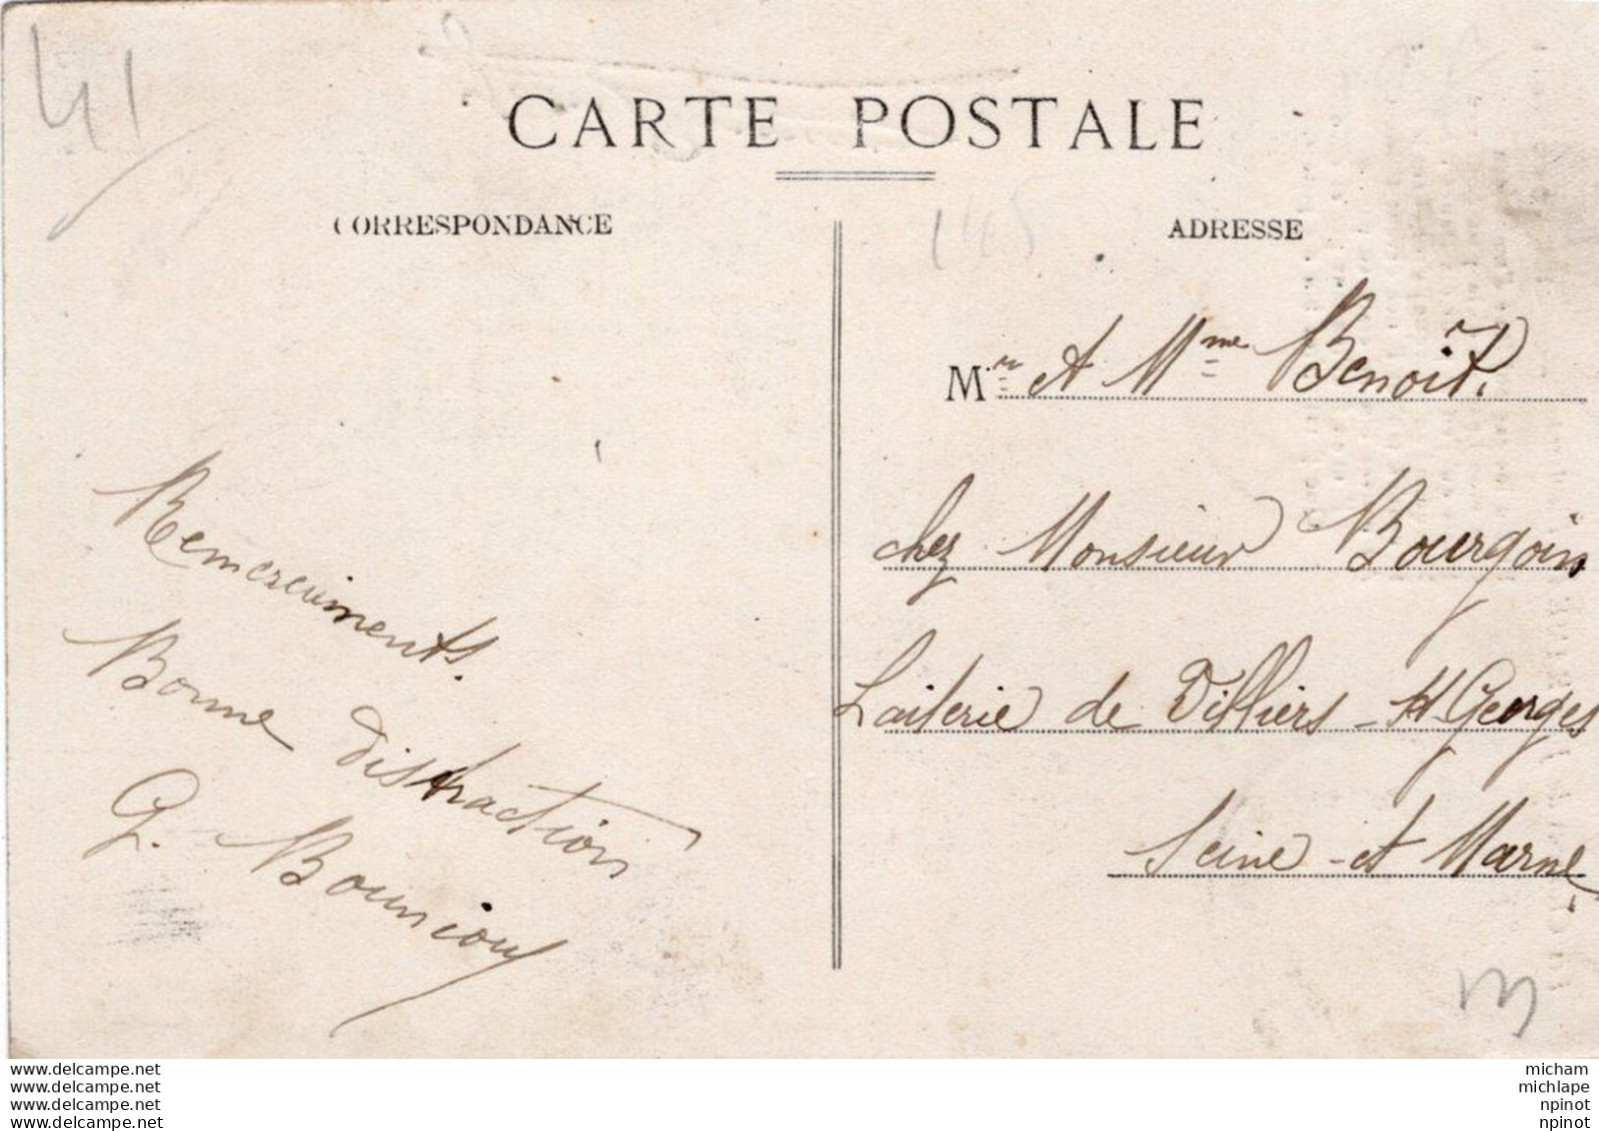 41
CARTE POSTALE
CORRESPONDANCE
Remerciements.
Bonne distraction
G.
ADRESSE
Mr et Mme Benoit.
chez Monsieur Bourgoin
Laiterie de Villiers-St-Georges
Seine-et Marne
www.delcampe.net
www.delcampe.net
www.delcampe.net
www.delcampe.net
micham
michlape
npinot
npinot